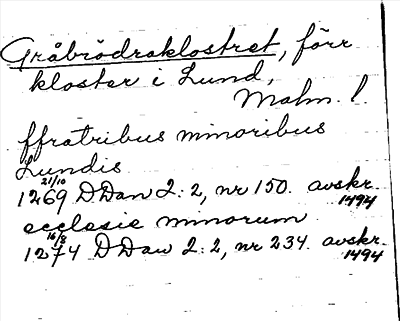 Gråbrödraklostret, förr
kloster i Lund,
Malm. l.
ffratribus minoribus
Lundis
21/10
1269 DDan 2:2, nr 150. avskr. 1494
ecclesie minorum
16/8
1274 DDan 2:2, nr 234. avskr. 1494